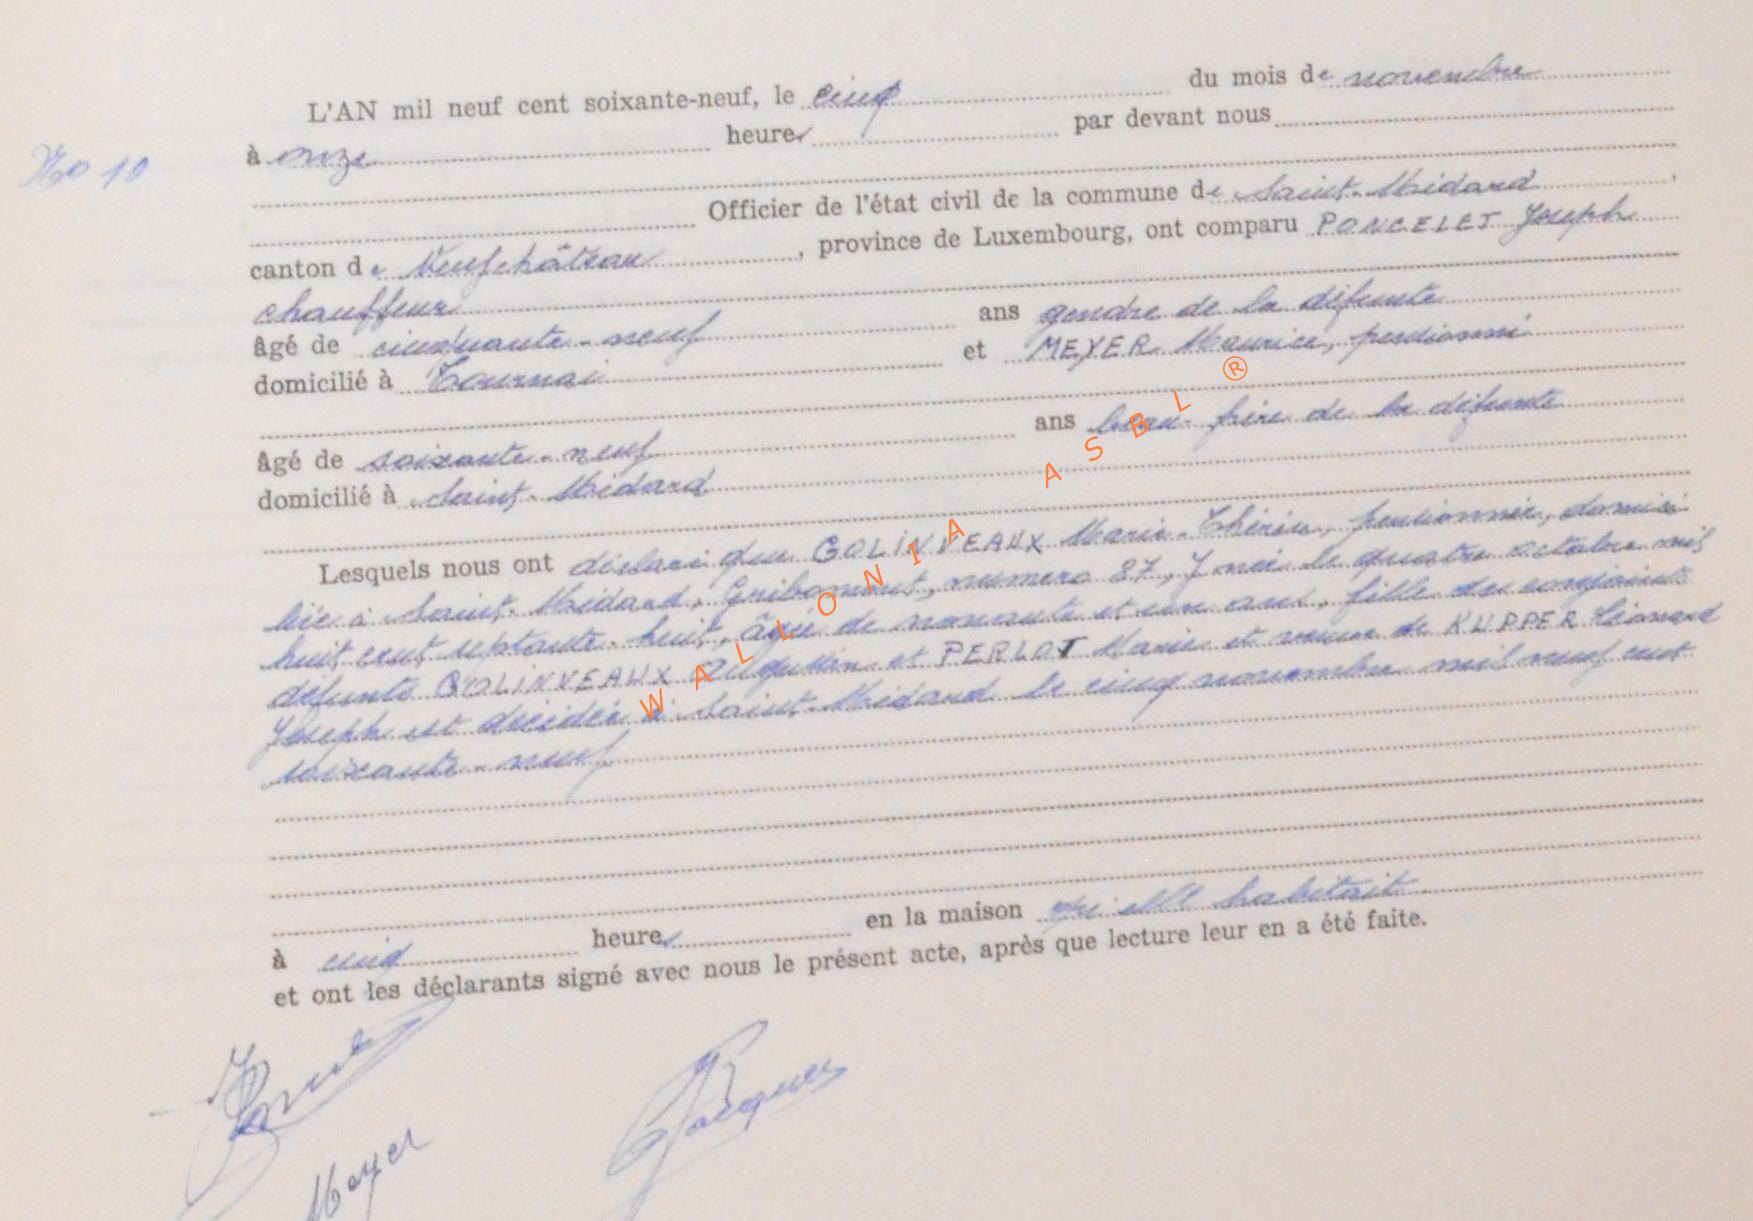 L'AN mil neuf cent soixante-neuf, le cinq du mois de novembre
No 10
à onze heures par devant nous
Officier de l'état civil de la commune de Saint-Médard,
canton de Neufchâteau, province de Luxembourg, ont comparu PONCELET Joseph
chauffeur
âgé de cinquante-neuf ans gendre de la défunte
domicilié à Tournai et MEYER Maurice, pensionné
âgé de soixante-neuf ans beau-frère de la défunte
domicilié à Saint-Médard
Lesquels nous ont déclaré que GOLINVEAUX Marie-Thérèse, pensionnée, domici
liée à Saint-Médard, Gribomont, numéro 87, y née le quatre octobre mil
huit cent septante-huit, âgée de nonante et un ans, fille des conjoints
défunts GOLINVEAUX Augustin et PERLOT Marie et veuve de KUPPER Léonard
Joseph est décédée à Saint-Médard le cinq novembre mil neuf cent
soixante-neuf
à cinq heures en la maison qu'elle habitait
et ont les déclarants signé avec nous le présent acte, après que lecture leur en a été faite.
Meyer
Jacques
WALLONIA ASBL ®